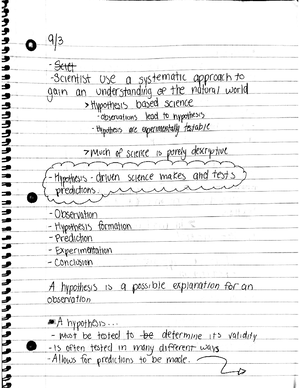 9/3
- Scief
- Scientist use a systematic approach to
gain an understanding of the natural world
> Hypothesis based science
- observations lead to hypothesis
- Hypothesis are experimentally testable
> Much of science is purely descriptive
- Hypothesis - driven science makes and tests
predictions.
- Observation
- Hypothesis formation
- Prediction
- Experimentation
- Conclusion
A hypothesis is a possible explanation for an
observation
A hypothesis...
- Must be tested to be determine its validity
- Is often tested in many different ways
- Allows for predictions to be made.